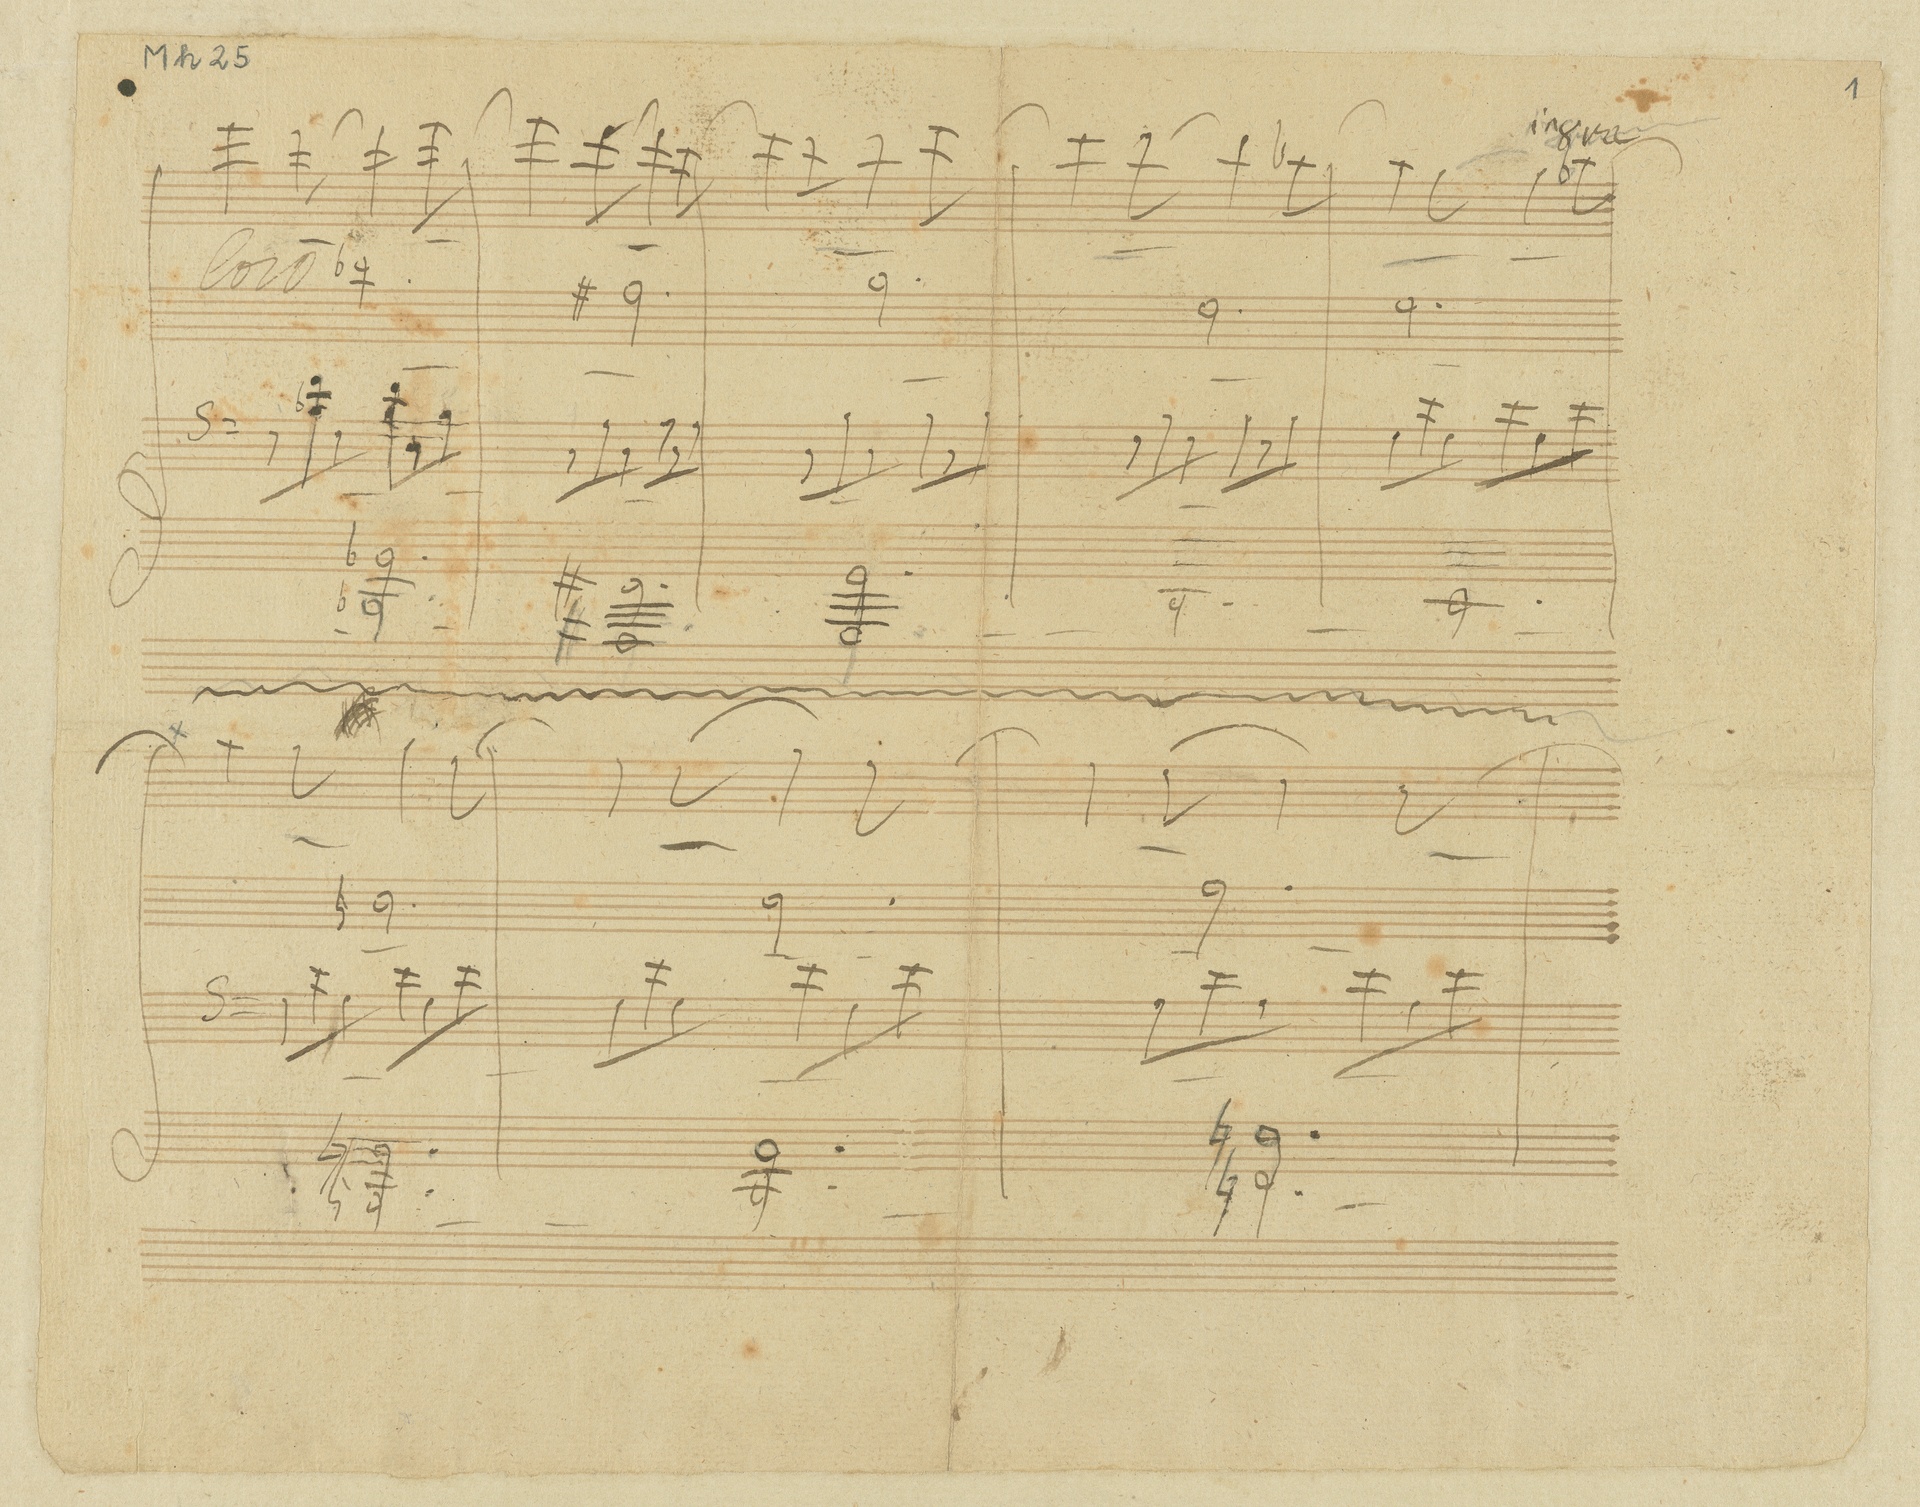 Mh 25
1
in 8va
loco